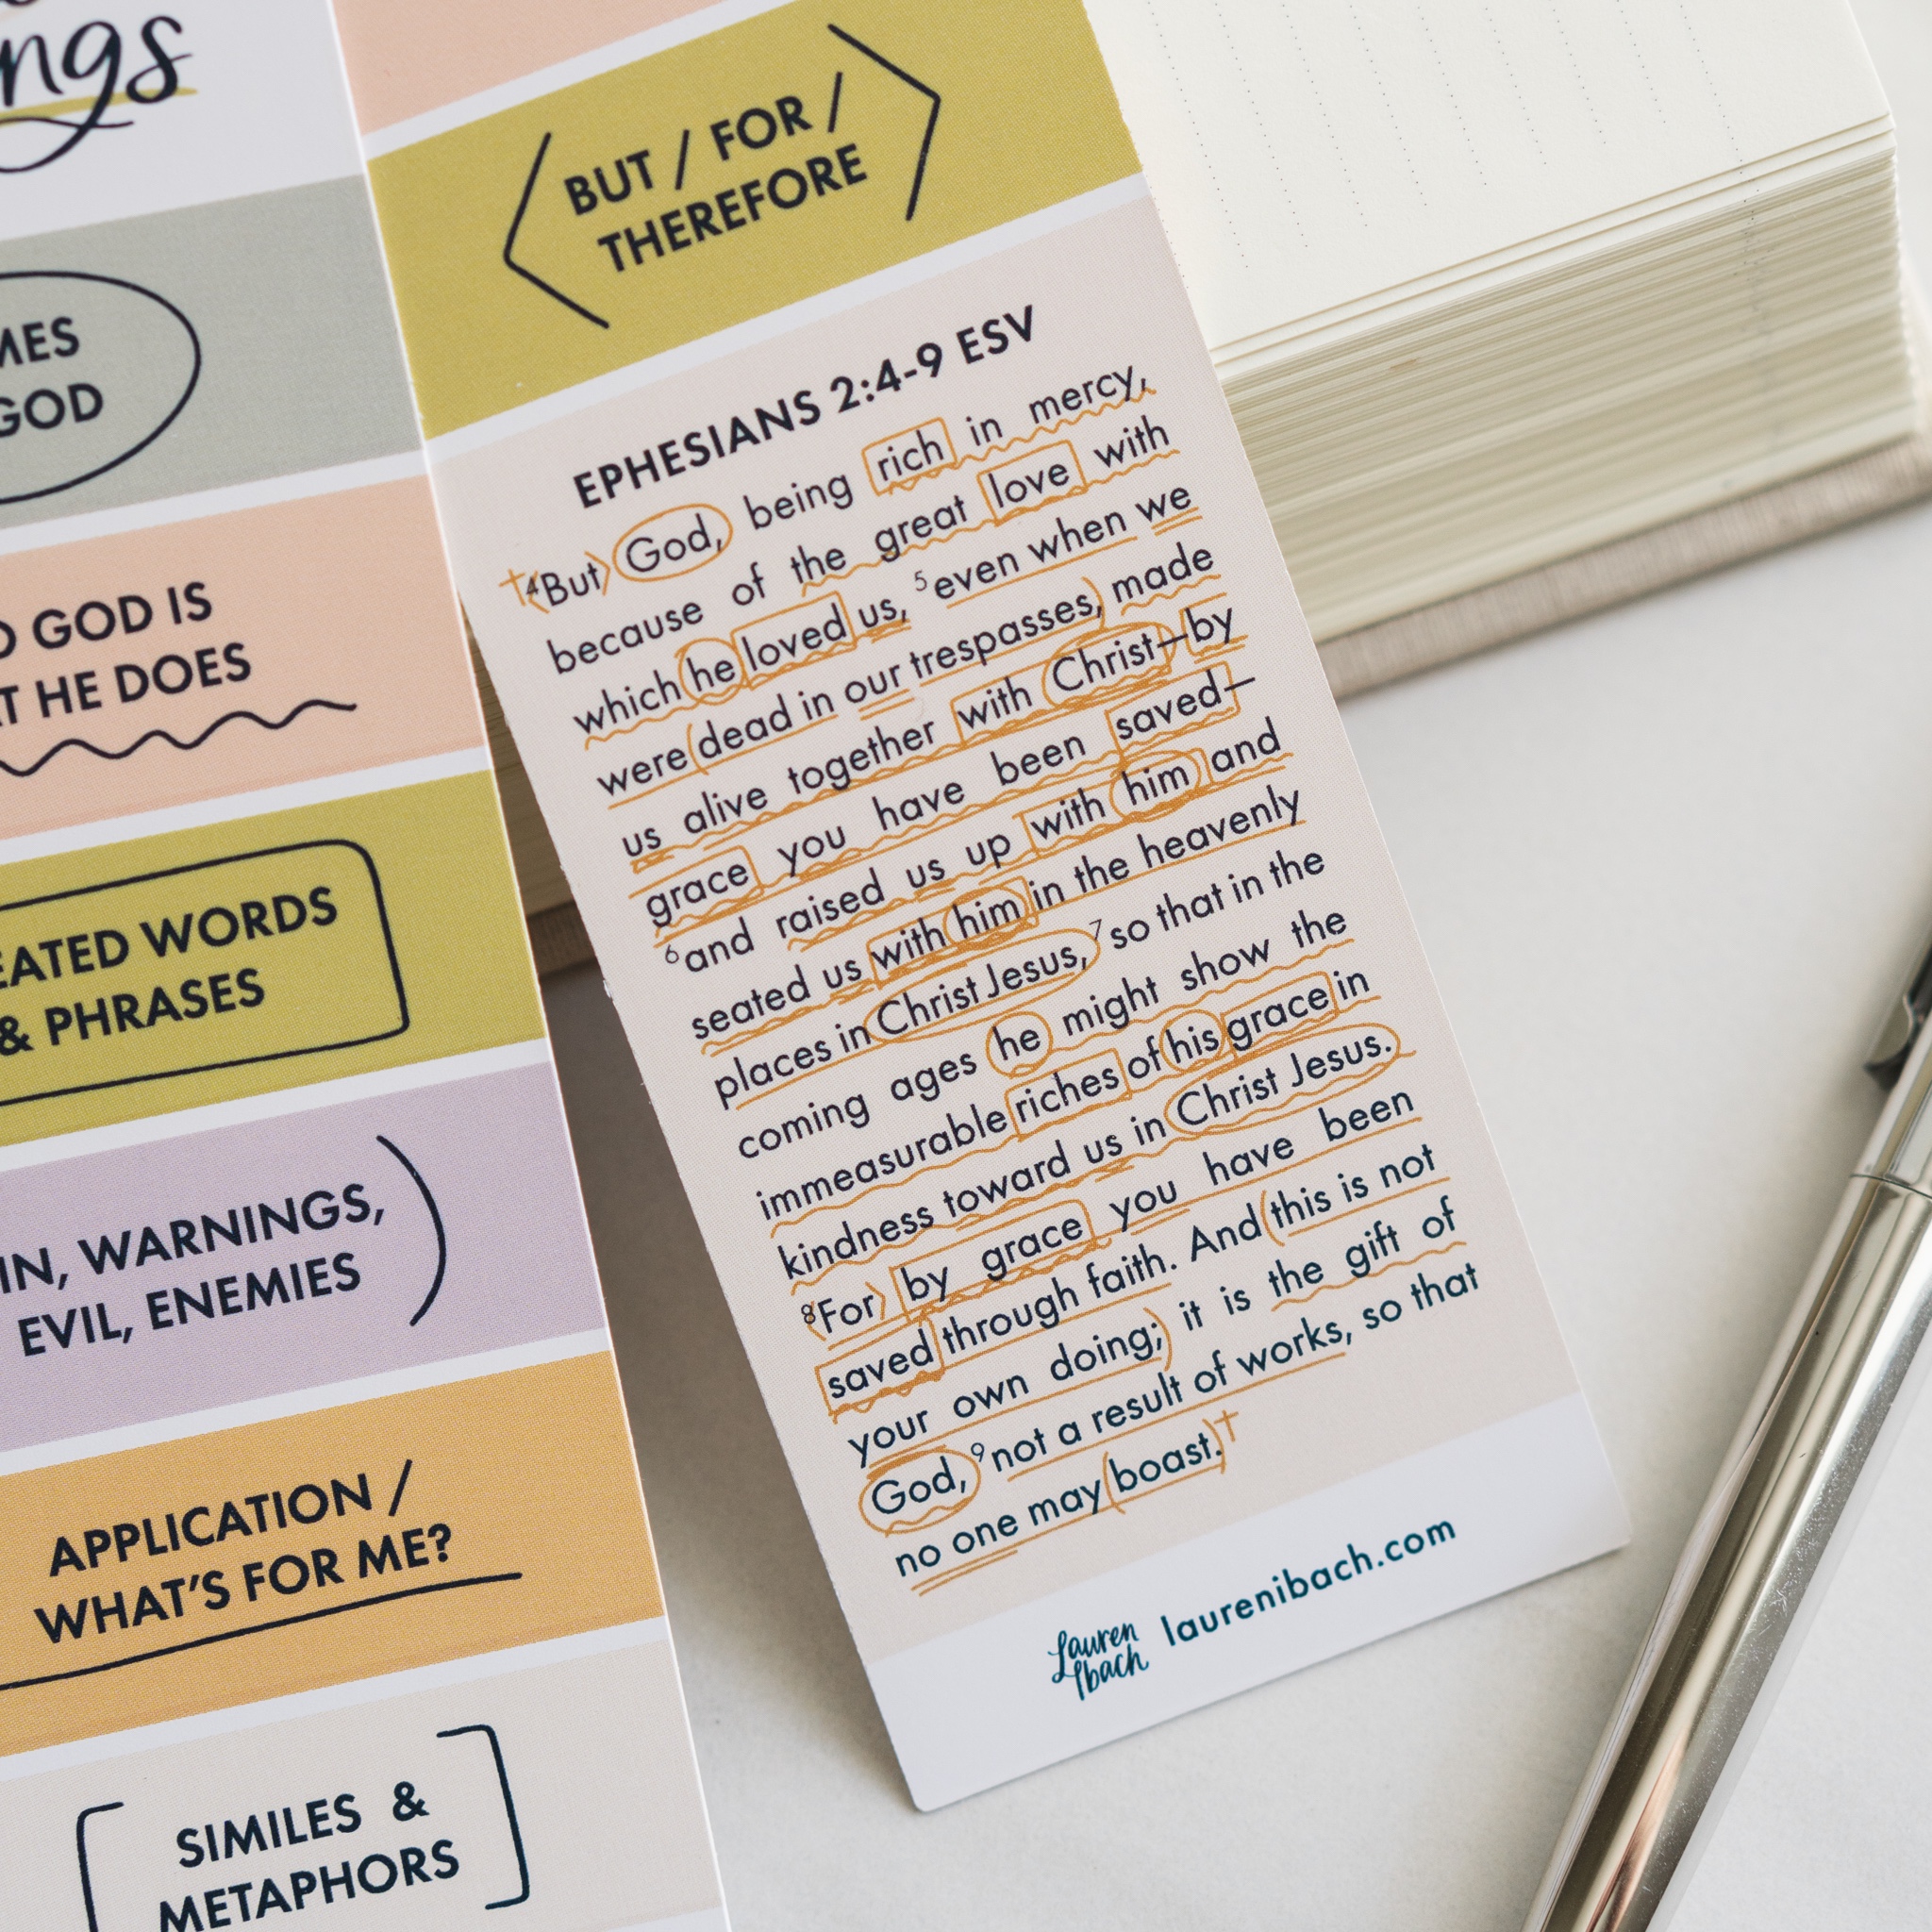 ngs
MES
GOD
GOD IS
HE DOES
WORDS
& PHRASES
WARNINGS,
EVIL, ENEMIES
APPLICATION /
WHAT'S FOR ME?
SIMILES &
METAPHORS
BUT / FOR /
THEREFORE
EPHESIANS 2:4-9 ESV
4But God, being rich in mercy,
because of the great love with
which he loved us, 5even when we
were dead in our trespasses, made
us alive together with Christ—by
grace you have been saved—
6and raised us up with him and
seated us with him in the heavenly
places in Christ Jesus, 7so that in the
coming ages he might show the
immeasurable riches of his grace in
kindness toward us in Christ Jesus.
8For by grace you have been
saved through faith. And this is not
your own doing; it is the gift of
God, 9not a result of works, so that
no one may boast.
Lauren
Ibach
laurenibach.com